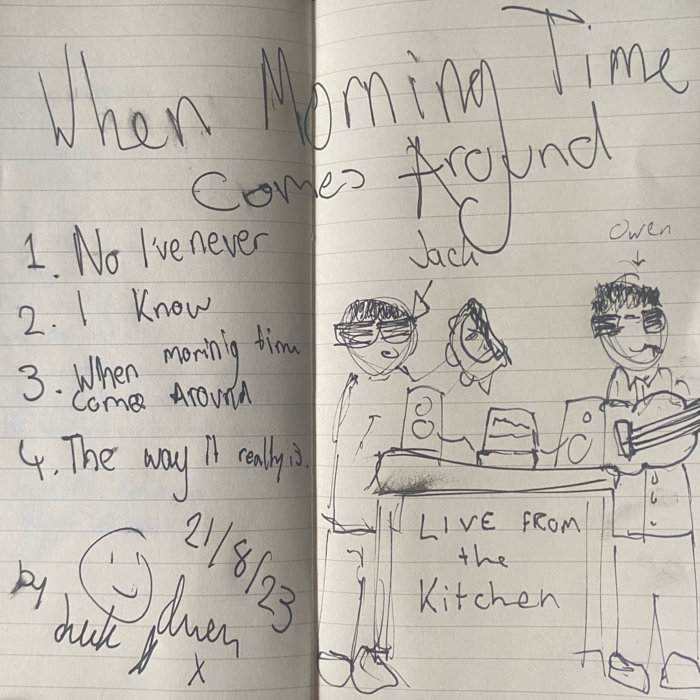 When Morning Time
Comes Around
1. No I've never
2. I Know
3. When morinig time
Comes Around
4. The way it really is.
21/8/23
by
x
Jack
Owen
LIVE FROM
the
Kitchen